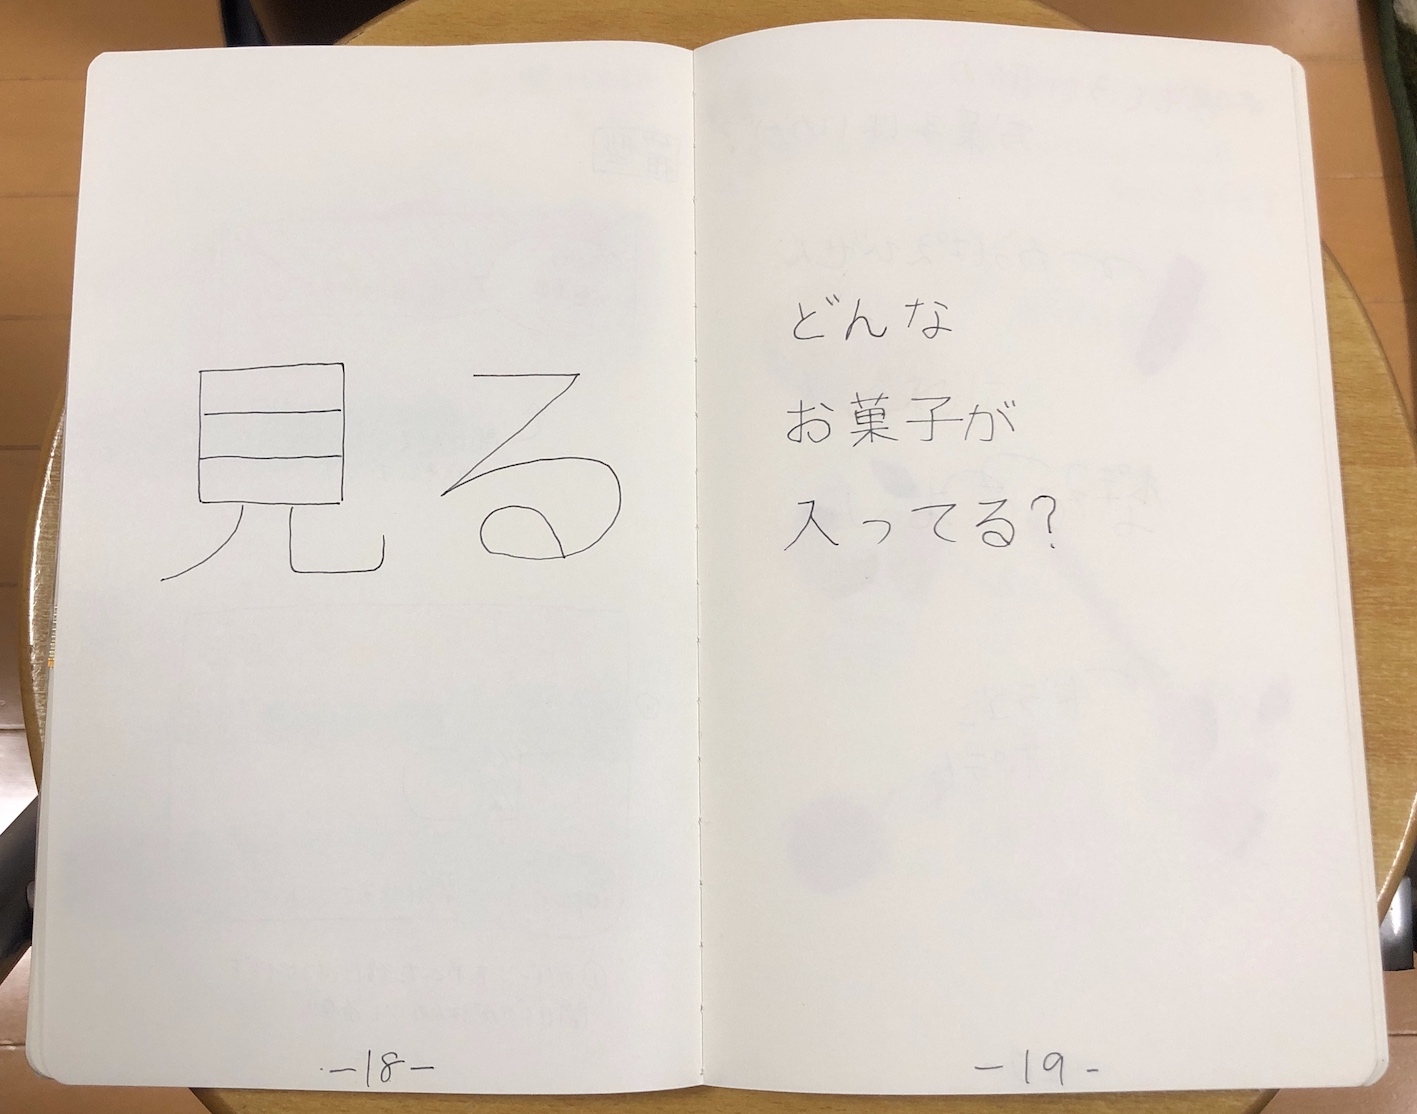 見る
-18-
どんな
お菓子が
入ってる?
-19-